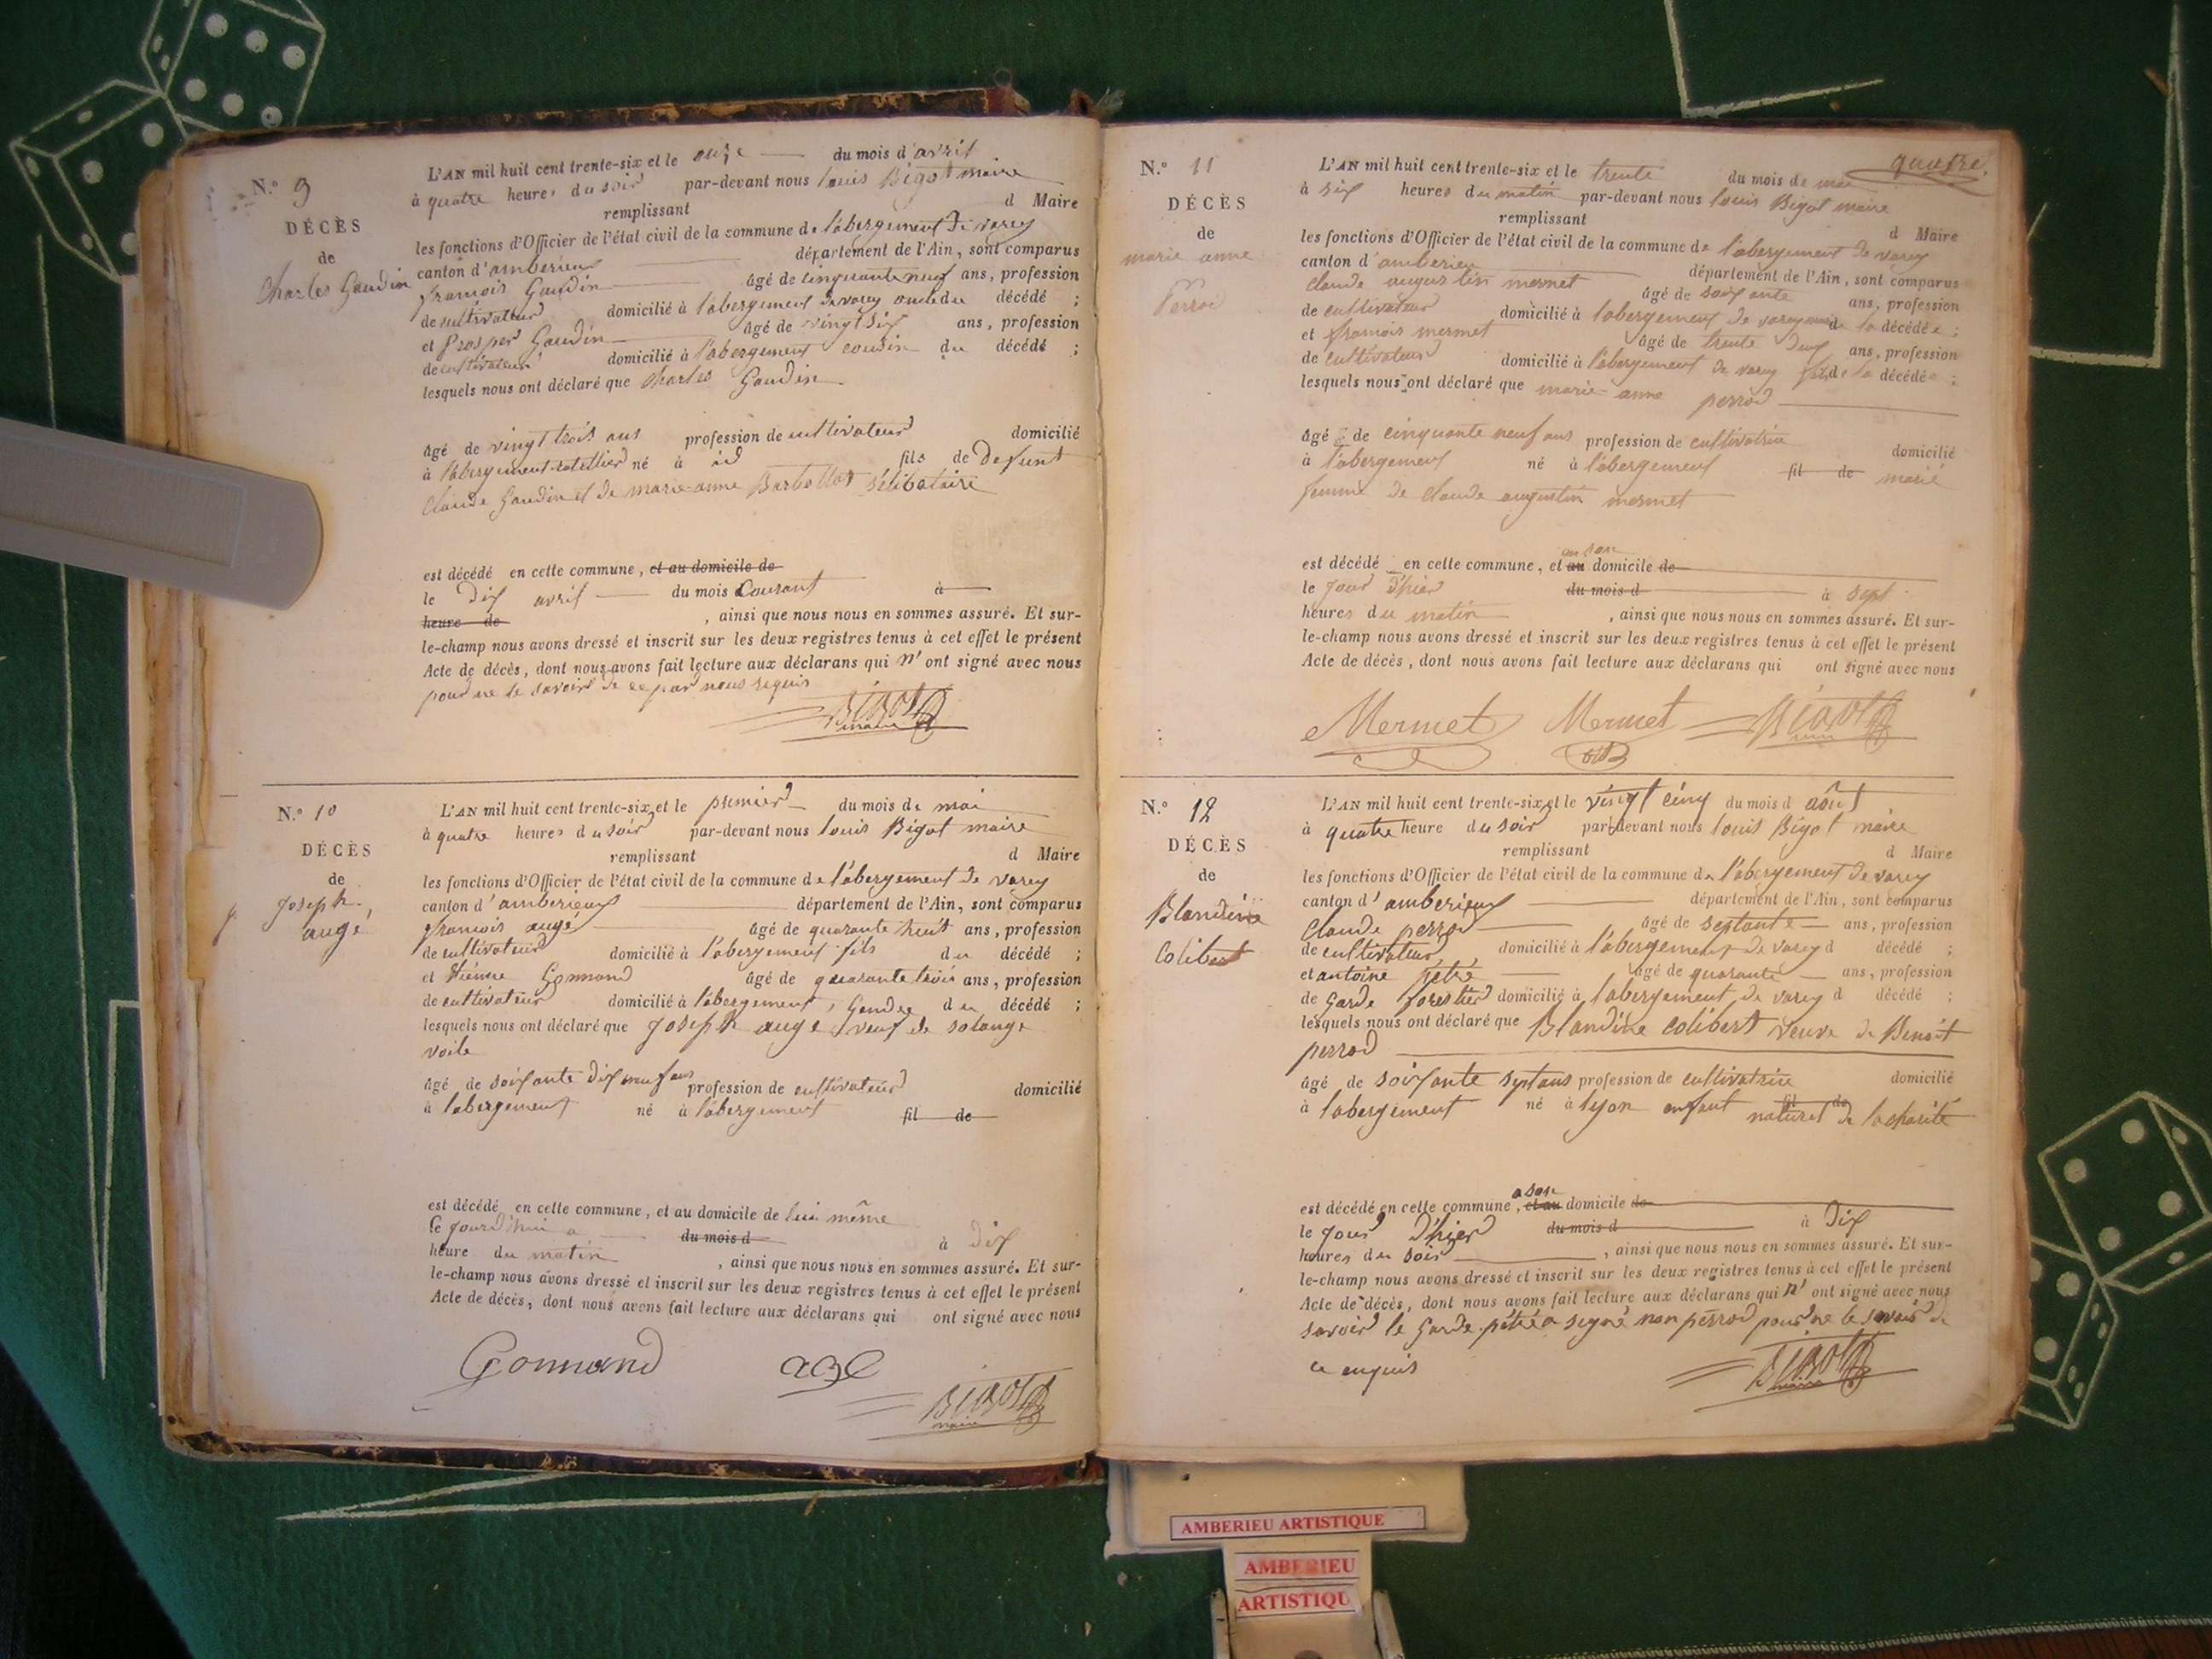 N.° 9
DÉCÈS
de
Charles Gaudin
L'AN mil huit cent trente-six et le onze du mois d'avril
à quatre heures du soir par-devant nous louis Bigot maire
remplissant d Maire
les fonctions d'Officier de l'état civil de la commune de l'abergement de varey
canton d'amberieux département de l'Ain, sont comparus
françois Gaudin âgé de cinquante neuf ans, profession
de cultivateur domicilié à l'abergement de varey oncle du décédé ;
et Prosper Gaudin âgé de vingt six ans, profession
de cultivateur domicilié à l'abergement cousin du décédé ;
lesquels nous ont déclaré que Charles Gaudin
âgé de vingt trois ans profession de cultivateur domicilié
à l'abergement né à id fils de defunt
Claude Gaudin et de marie-anne célibataire
est décédé en cette commune, et au domicile de
le dix avril du mois Courant à
heure de , ainsi que nous nous en sommes assuré. Et sur-
le-champ nous avons dressé et inscrit sur les deux registres tenus à cet effet le présent
Acte de décès, dont nous avons fait lecture aux déclarans qui n' ont signé avec nous
pour ne le savoir de ce par nous requis
Bigot
maire
N.° 10
DÉCÈS
de
Joseph
auge
L'AN mil huit cent trente-six et le premier du mois de mai
à quatre heures du soir par-devant nous louis Bigot maire
remplissant d Maire
les fonctions d'Officier de l'état civil de la commune de l'abergement de varey
canton d'amberieux département de l'Ain, sont comparus
françois augé âgé de quarante huit ans, profession
de cultivateur domicilié à l'abergement fils du décédé ;
et étienne Gonnand âgé de quarante trois ans, profession
de cultivateur domicilié à l'abergement, Gendre du décédé ;
lesquels nous ont déclaré que Joseph auge veuf de solange
voile
âgé de soixante dix neuf ans profession de cultivateur domicilié
à labergement né à l'abergement fil de
est décédé en cette commune, et au domicile de lui même
le jourd'hui a du mois d à dix
heure du matin , ainsi que nous nous en sommes assuré. Et sur-
le-champ nous avons dressé et inscrit sur les deux registres tenus à cet effet le présent
Acte de décès, dont nous avons fait lecture aux déclarans qui ont signé avec nous
Gonnand
Bigot
maire
quatre
N.° 11
DÉCÈS
de
marie anne
Perrod
L'AN mil huit cent trente-six et le trente du mois de mai
à six heures du matin par-devant nous louis Bigot maire
remplissant d Maire
les fonctions d'Officier de l'état civil de la commune de l'abergement de varey
canton d'amberieu département de l'Ain, sont comparus
Claude augustin mermet âgé de soixante ans, profession
de cultivateur domicilié à l'abergement de varey de la décédée ;
et françois mermet âgé de trente deux ans, profession
de cultivateur domicilié à l'abergement de varey fils de la décédée ;
lesquels nous ont déclaré que marie anne perrod
âgé de cinquante neuf ans profession de cultivatrice domicilié
à l'abergement né à l'abergement fil de marié
femme de claude augustin mermet
est décédé en cette commune, et au en son domicile de
le jour d'hier du mois d à sept
heures du matin , ainsi que nous nous en sommes assuré. Et sur-
le-champ nous avons dressé et inscrit sur les deux registres tenus à cet effet le présent
Acte de décès, dont nous avons fait lecture aux déclarans qui ont signé avec nous
Mermet Mermet Bigot
N.° 12
DÉCÈS
de
Blandine
Colibert
L'AN mil huit cent trente-six et le vingt cinq du mois d août
à quatre heure du soir par-devant nous louis Bigot maire
remplissant d Maire
les fonctions d'Officier de l'état civil de la commune de l'abergement de varey
canton d'amberieux département de l'Ain, sont comparus
Claude perrod âgé de septante ans, profession
de cultivateur domicilié à l'abergement de varey d décédé ;
et antoine pétré âgé de quarante ans, profession
de Garde forestier domicilié à l'abergement de varey d décédé ;
lesquels nous ont déclaré que Blandine Colibert veuve de Benoit
perrod
âgé de soixante sept ans profession de cultivatrice domicilié
à labergement né à lyon enfant fil de naturel de la charité
est décédé en cette commune, et au a son domicile de
le jour d'hier du mois d à dix
heures du soir , ainsi que nous nous en sommes assuré. Et sur-
le-champ nous avons dressé et inscrit sur les deux registres tenus à cet effet le présent
Acte de décès, dont nous avons fait lecture aux déclarans qui n' ont signé avec nous
savoir le Garde pétré a signé non perrod pour ne le savoir de
ce enquis
Bigot
maire
AMBERIEU ARTISTIQUE
AMBERIEU
ARTISTIQU